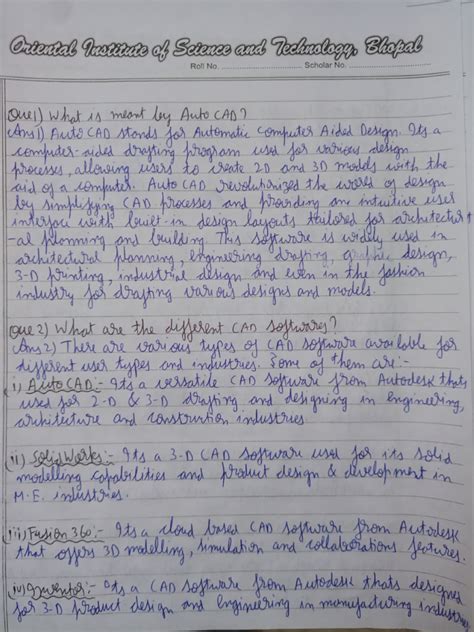 Oriental Institute of Science and Technology, Bhopal
Roll No. .................... Scholar No. ....................
Que 1) What is meant by Auto CAD?
Ans 1) Auto CAD stands for Automatic Computer Aided Design. Its a
computer-aided drafting program used for various design
processes, allowing users to create 2-D and 3D models with the
aid of a computer. Auto CAD revolutionized the world of design
by simplifying CAD processes and providing an intuitive user
interface with built-in design layouts tailored for architectur
-al planning and building. This software is widely used in
architectural planning, engineering drafting, graphic design,
3-D printing, industrial design and even in the fashion
industry for drafting various designs and models.
Que 2) What are the different CAD softwares?
Ans 2) There are various types of CAD software available for
different user types and industries. Some of them are:-
i) Auto CAD:- Its a versatile CAD software from Autodesk thats
used for 2-D & 3-D drafting and designing in engineering,
architecture and construction industries.
ii) Solid Works:- Its a 3-D CAD software used for its solid
modelling capabilities and product design & development in
M.E. industries.
iii) Fusion 360:- Its a cloud based CAD software from Autodesk
that offers 3D modelling, simulation and collaborations features.
iv) Inventor:- Its a CAD software from Autodesk thats designed
for 3-D product design and engineering in manufacturing industries